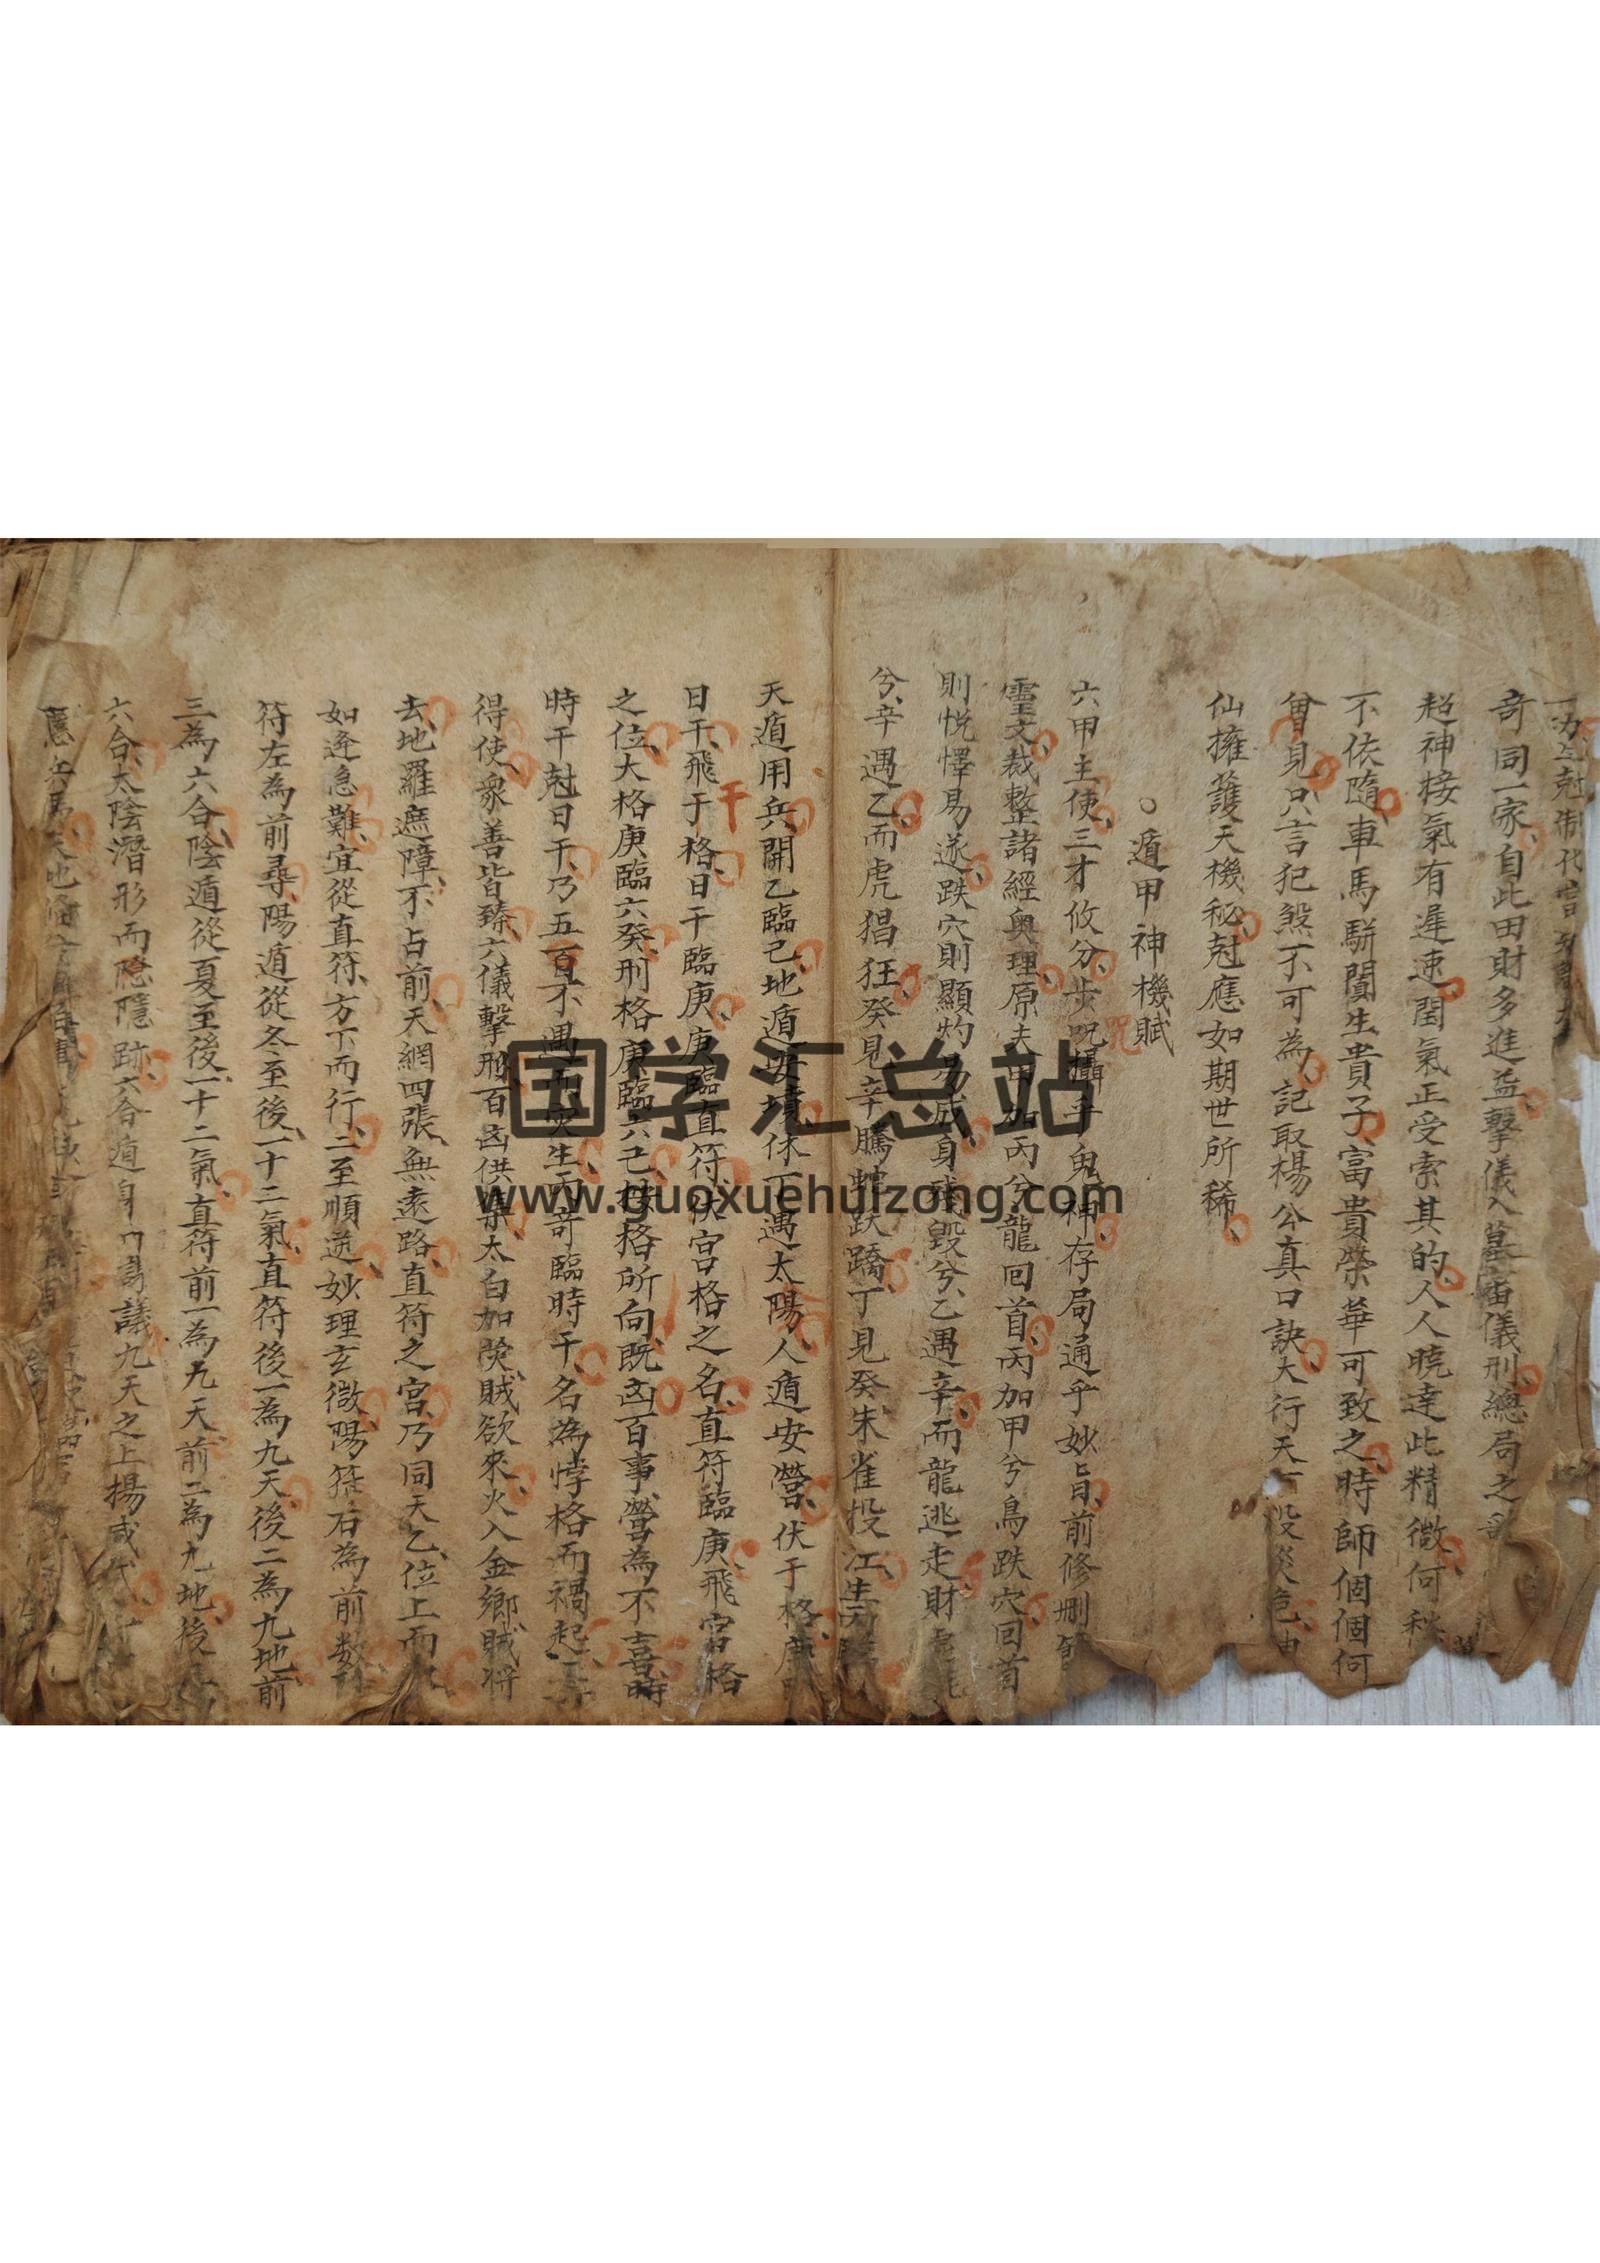 奇同一家自此田財多進益擊儀入墓宙儀刑總局之
超神接氣有遲速閏氣正受索其的人人曉達此精微何
不依隨車馬駢闐生貴子富貴榮華可致之時師個個何
曾見只言犯煞不可為記取楊公真口訣大行天下沒災危
仙擁護天機秘尅應如期世所稀
遁甲神機賦
六甲主使三才攸分步呪攝乎鬼神存局通乎妙旨前修刪
呪
靈文裁整諸經奧理原夫甲加丙兮龍回首丙加甲兮鳥跌穴回首
則悅懌易遂跌穴則顯灼易成身殘毀兮乙遇辛而龍逃走財
兮辛遇乙而虎猖狂癸見辛騰蛇跃蹻丁見癸朱雀投江生
天遁用兵開乙臨己地遁安墳休丁遇太陽人遁安營伏于格庚
日干飛于格日干臨庚庚臨直符伏宮格之名直符臨庚飛宮格
干
之位大格庚臨六癸刑格庚臨六己格所向既凶百事營為不喜時
時干尅日干乃五百不遇而災生丙奇臨時干名為悖格而禍起
得使衆善皆臻六儀擊刑百凶供集太白加熒賊欲來火入金鄉賊将
去地羅遮障不占前天網四張無遠路直符之宮乃同天乙位上而
如逢急難宜從直符方下而行二至順逆妙理玄微陽符右為前
符左為前尋陽遁從冬至後一十二氣直符後一為九天後二為九地前
三為六合陰遁從夏至後一十二氣直符前一為九天前二為九地後
六合太陰潛形而隐隱跡六合遁身議九天之上揚威